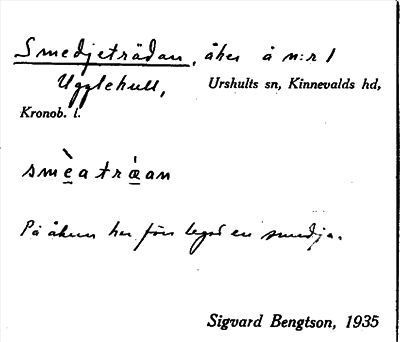 Smedjeträdan, åker å n:r 1
Ugglehult, Urshults sn, Kinnevalds hd,
Kronob. l.
smèatráan
På åkern har förr legat en smedja.
Sigvard Bengtson, 1935